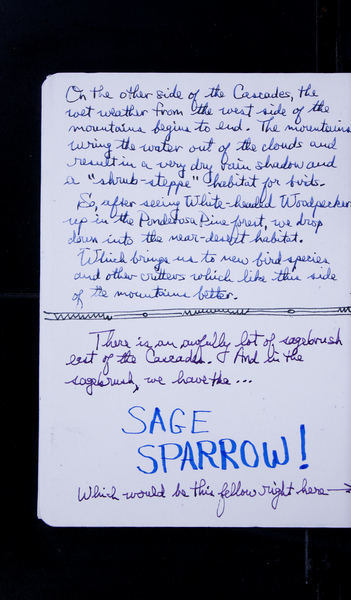 On the other side of the Cascades, the
wet weather from the west side of the
mountains begins to end. The mountains
wring the water out of the clouds and
result in a very dry rain shadow and
a "shrub-steppe" habitat for birds.
So, after seeing White-headed Woodpecker
up in the Ponderosa Pine forest, we drop
down into the near-desert habitat.
Which brings us to new bird species
and other critters which like this side
of the mountains better.
There is an awfully lot of sagebrush
east of the Cascades. And in the
sagebrush, we have the ...
SAGE
SPARROW!
Which would be this fellow right here →